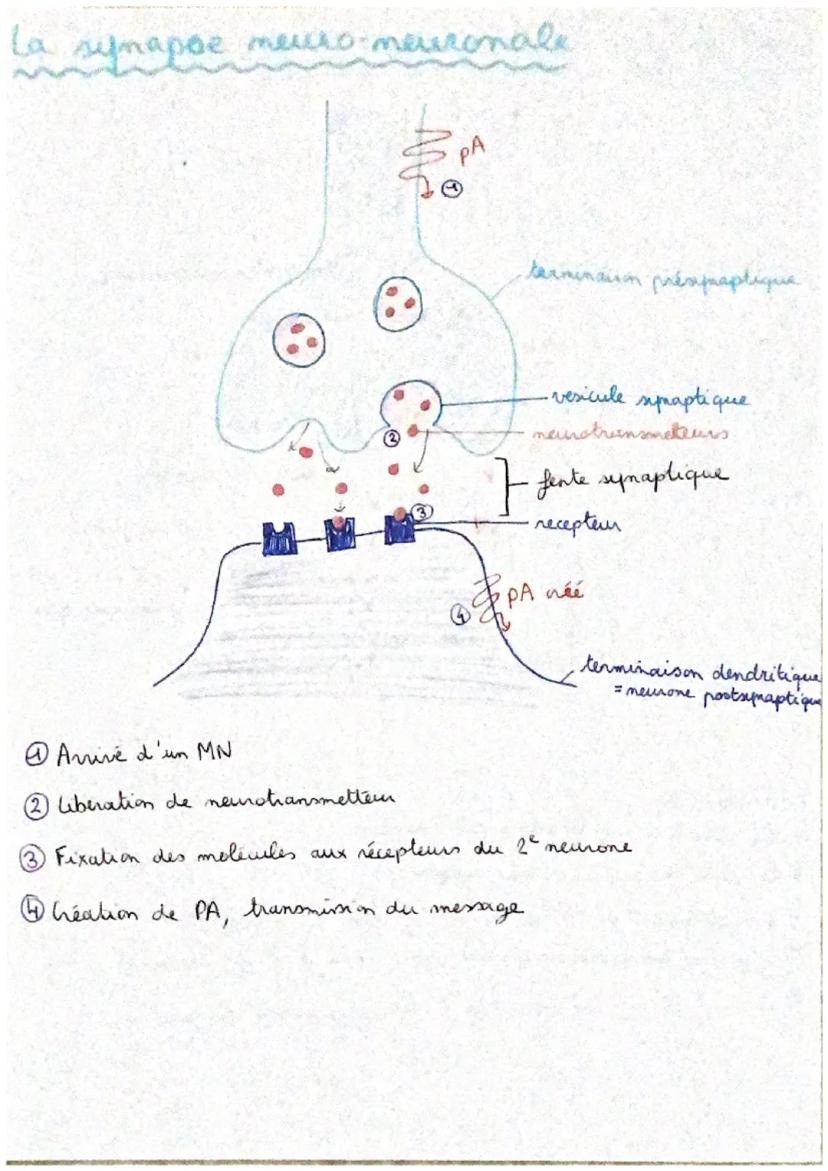 La synapse neuro-neuronale
PA
1
terminaison présynaptique
vesicule synaptique
neurotransmetteurs
2
fente synaptique
3
recepteur
PA créé
4
terminaison dendritique
= neurone postsynaptique
1 Arrivé d'un MN
2 Libération de neurotransmetteur
3 Fixation des molécules aux récepteurs du 2e neurone
4 Création de PA, transmission du message